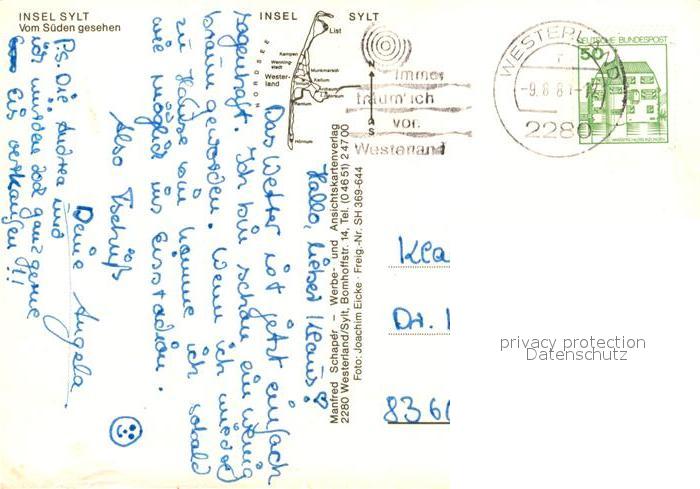 INSEL SYLT
Vom Süden gesehen
INSEL SYLT
NORDSEE
List
Kampen
Wenning-
stedt
Munkmarsch
Wester-
land
Keitum
Morsum
Rantum
Hörnum
N
S
Immer
träum' ich
von
Westerland
WESTERLAND
-9.8.8
2280
DEUTSCHE BUNDESPOST
50
Manfred Schaper – Werbe- und Ansichtskartenverlag
2280 Westerland/Sylt, Bomhoffstr. 14, Tel. (0 46 51) 2 47 00
Foto: Joachim Eicke · Freig.-Nr. SH 369-644
Hallo, lieber Klaus!
Das Wetter ist jetzt einfach
sagenhaft. Ich bin schon ein wenig
braun geworden. Wenn ich wieder
zu Hause bin komme ich sobald
wie möglich ins Eisstadion.
Also Tschüß
Deine Angela
P.S. Die Andrea und
ich würden dod ganz gerne
Eis verkaufen!!!
Kla
Dr.
836
privacy protection
Datenschutz